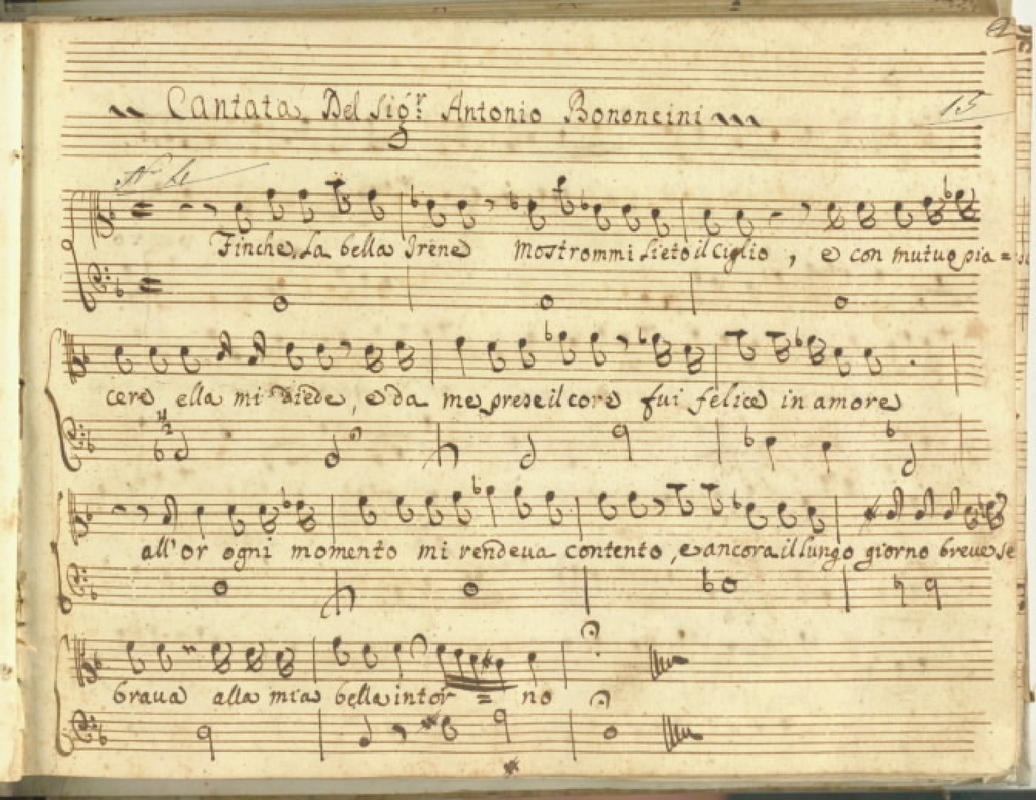 Cantata Del Sig.r Antonio Bononcini
15
Finche la bella Irene Mostrommi lieto il Ciglio, e con mutuo pia=
cere ella mi diede, e da me prese il core fui felice in amore
all'or ogni momento mi rendeua contento, e ancora il lungo giorno breue se
braua alla mia bella intor = no